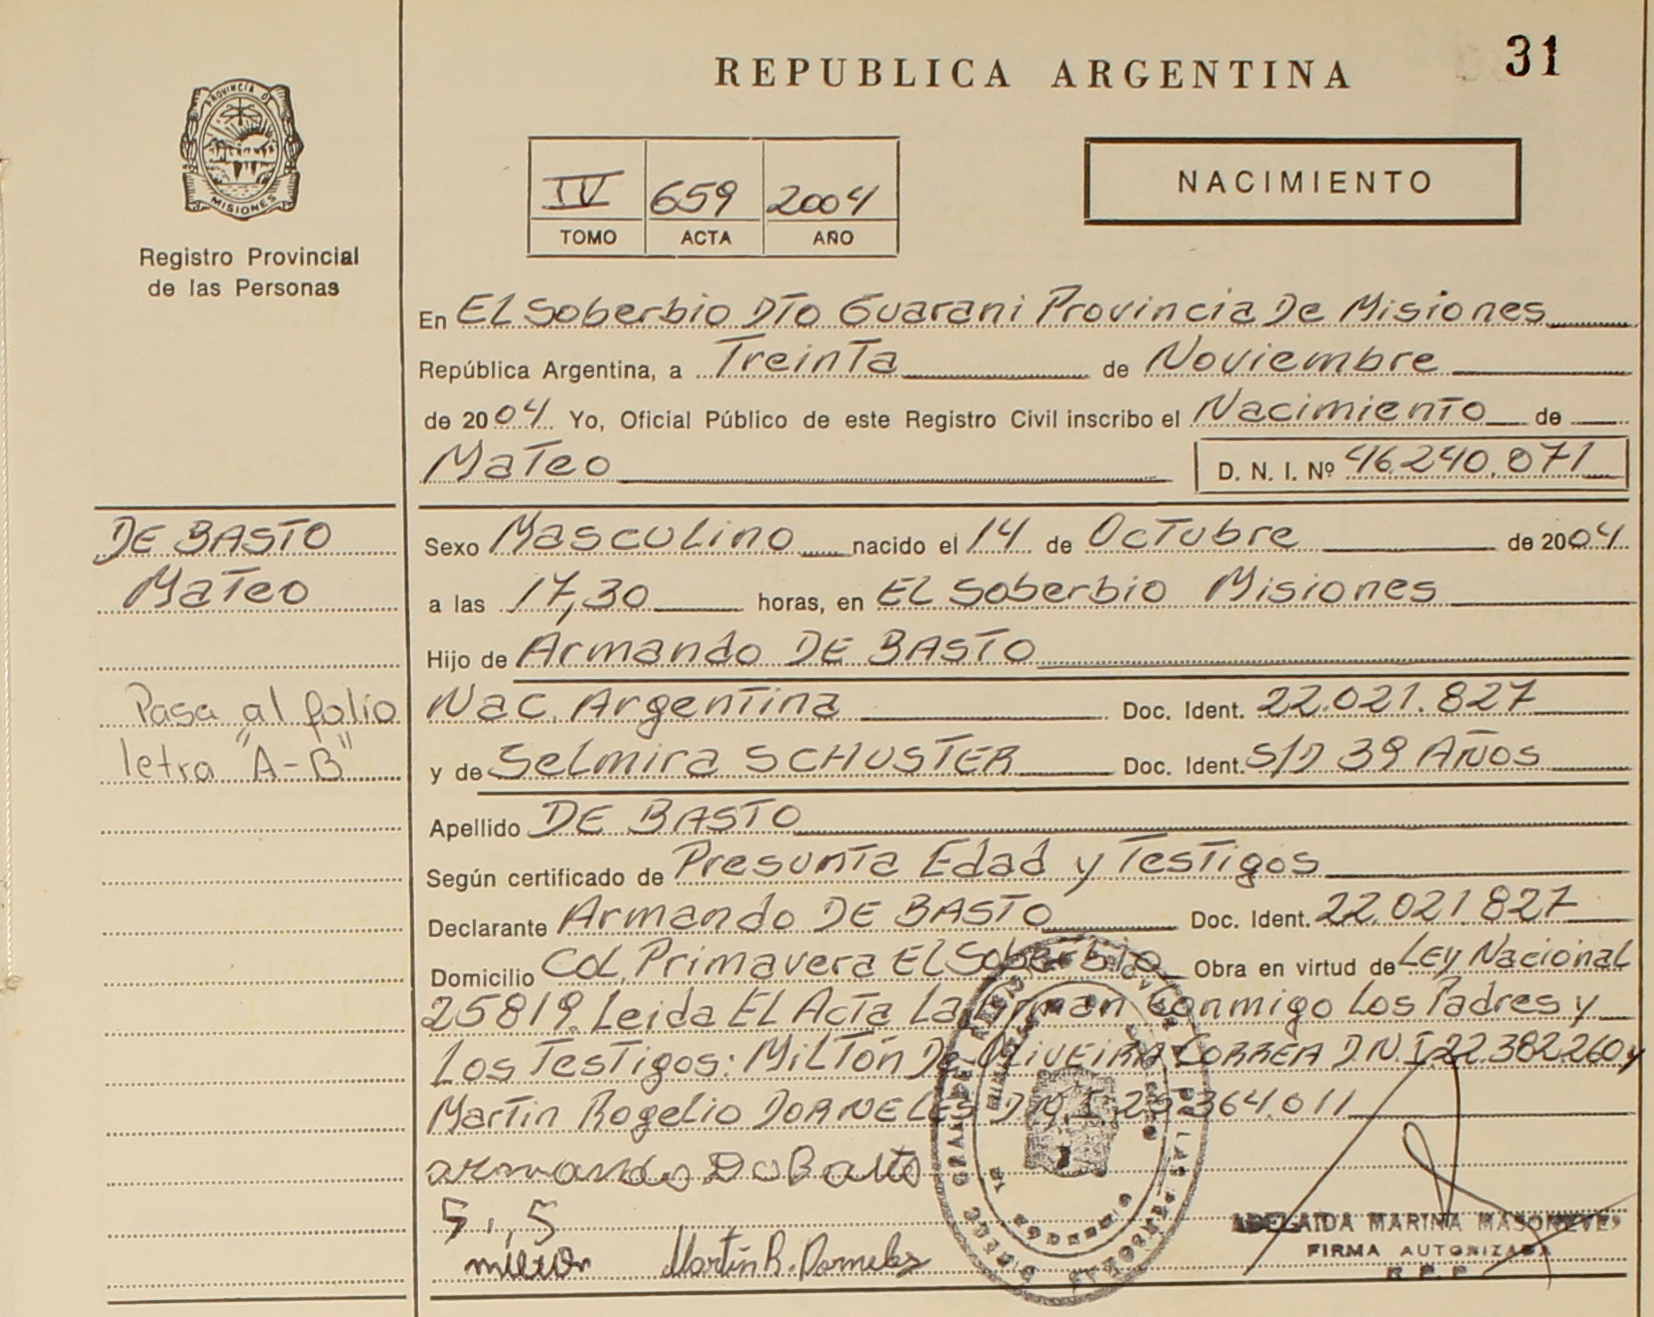 REPUBLICA ARGENTINA
31
PROVINCIA DE
MISIONES
Registro Provincial
de las Personas
IV 659 2004
TOMO ACTA AÑO
NACIMIENTO
En El Soberbio DTO Guarani Provincia De Misiones
República Argentina, a Treinta de Noviembre
de 2004 Yo, Oficial Público de este Registro Civil inscribo el Nacimiento de
Mateo D. N. I. Nº 46.240.071
DE BASTO
Mateo
Pasa al folio
letra "A-B"
Sexo Masculino nacido el 14 de Octubre de 2004
a las 17,30 horas, en El Soberbio Misiones
Hijo de Armando DE BASTO
Nac. Argentina Doc. Ident. 22.021.827
y de Selmira SCHUSTER Doc. Ident. S/D 39 AÑOS
Apellido DE BASTO
Según certificado de Presunta Edad y Testigos
Declarante Armando DE BASTO Doc. Ident. 22.021.827
Domicilio Col. Primavera El Soberbio Obra en virtud de Ley Nacional
25819. Leida El Acta La Firman Conmigo Los Padres y
Los Testigos: Milton De OLIVEIRA CORREA D.N.I. 22.382.260 y
Martin Rogelio DORNELES D.N.I. 364.011
armando
S. S
milton Martín R. Dorneles
ADELAIDA MARINA
FIRMA AUTORIZADA
R. P. P.